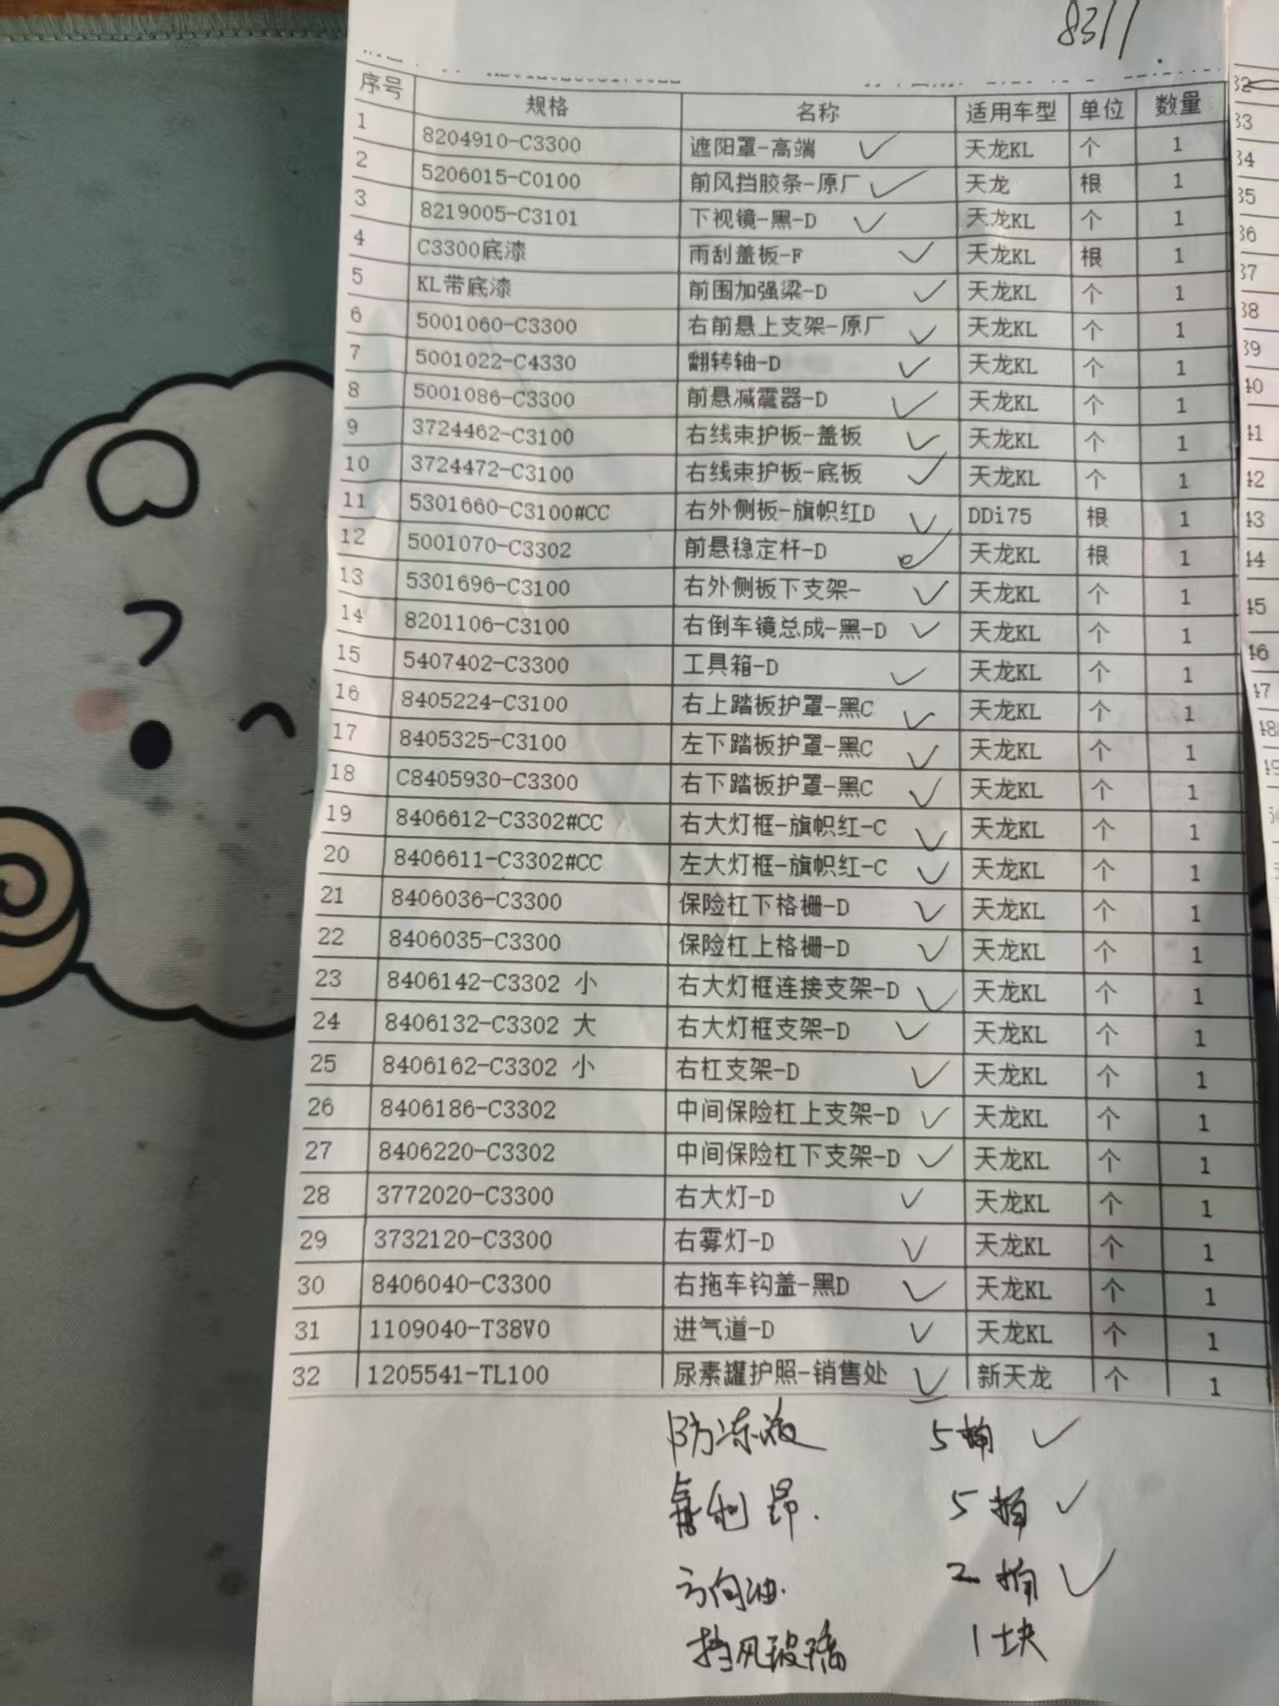 8311
序号 规格 名称 适用车型 单位 数量
1 8204910-C3300 遮阳罩-高端 天龙KL 个 1
2 5206015-C0100 前风挡胶条-原厂 天龙 根 1
3 8219005-C3101 下视镜-黑-D 天龙KL 个 1
4 C3300底漆 雨刮盖板-F 天龙KL 根 1
5 KL带底漆 前围加强梁-D 天龙KL 个 1
6 5001060-C3300 右前悬上支架-原厂 天龙KL 个 1
7 5001022-C4330 翻转轴-D 天龙KL 个 1
8 5001086-C3300 前悬减震器-D 天龙KL 个 1
9 3724462-C3100 右线束护板-盖板 天龙KL 个 1
10 3724472-C3100 右线束护板-底板 天龙KL 个 1
11 5301660-C3100#CC 右外侧板-旗帜红D DDi75 根 1
12 5001070-C3302 前悬稳定杆-D 天龙KL 根 1
13 5301696-C3100 右外侧板下支架- 天龙KL 个 1
14 8201106-C3100 右倒车镜总成-黑-D 天龙KL 个 1
15 5407402-C3300 工具箱-D 天龙KL 个 1
16 8405224-C3100 右上踏板护罩-黑C 天龙KL 个 1
17 8405325-C3100 左下踏板护罩-黑C 天龙KL 个 1
18 C8405930-C3300 右下踏板护罩-黑C 天龙KL 个 1
19 8406612-C3302#CC 右大灯框-旗帜红-C 天龙KL 个 1
20 8406611-C3302#CC 左大灯框-旗帜红-C 天龙KL 个 1
21 8406036-C3300 保险杠下格栅-D 天龙KL 个 1
22 8406035-C3300 保险杠上格栅-D 天龙KL 个 1
23 8406142-C3302 小 右大灯框连接支架-D 天龙KL 个 1
24 8406132-C3302 大 右大灯框支架-D 天龙KL 个 1
25 8406162-C3302 小 右杠支架-D 天龙KL 个 1
26 8406186-C3302 中间保险杠上支架-D 天龙KL 个 1
27 8406220-C3302 中间保险杠下支架-D 天龙KL 个 1
28 3772020-C3300 右大灯-D 天龙KL 个 1
29 3732120-C3300 右雾灯-D 天龙KL 个 1
30 8406040-C3300 右拖车钩盖-黑D 天龙KL 个 1
31 1109040-T38V0 进气道-D 天龙KL 个 1
32 1205541-TL100 尿素罐护照-销售处 新天龙 个 1
防冻液 5桶
氟利昂. 5桶
方向油. 2桶
挡风玻璃 1块
32
33
34
35
36
37
38
39
40
41
42
43
44
45
46
47
48
49